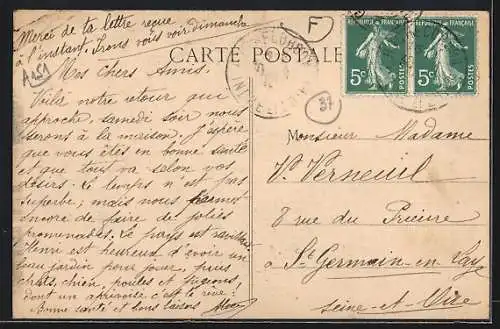 Merci de ta lettre reçue
à l'instant. Irons vous voir dimanche
A451
F
37
CARTE POSTALE
RÉPUBLIQUE FRANÇAISE
5c POSTES
RÉPUBLIQUE FRANÇAISE
5c POSTES
Mes Chers Amis.
Voilà notre retour qui
approche, samedi soir nous
serons à la maison. J'espère
que vous êtes en bonne santé
et que tout va selon vos
désirs. Le temps n'est pas
superbe; mais nous permet
encore de faire de jolies
promenades. Le pays est
Henri est heureux d'avoir un
beau jardin pour jouer, puis
chats, chien, poules et pigeons,
dont un apprivoisé c'est le rêve!
Bonne santé et bons baisers
Monsieur Madame
V. Verneuil
8 rue du Prieuré
à St Germain-en-Lay
Seine-et-Oise